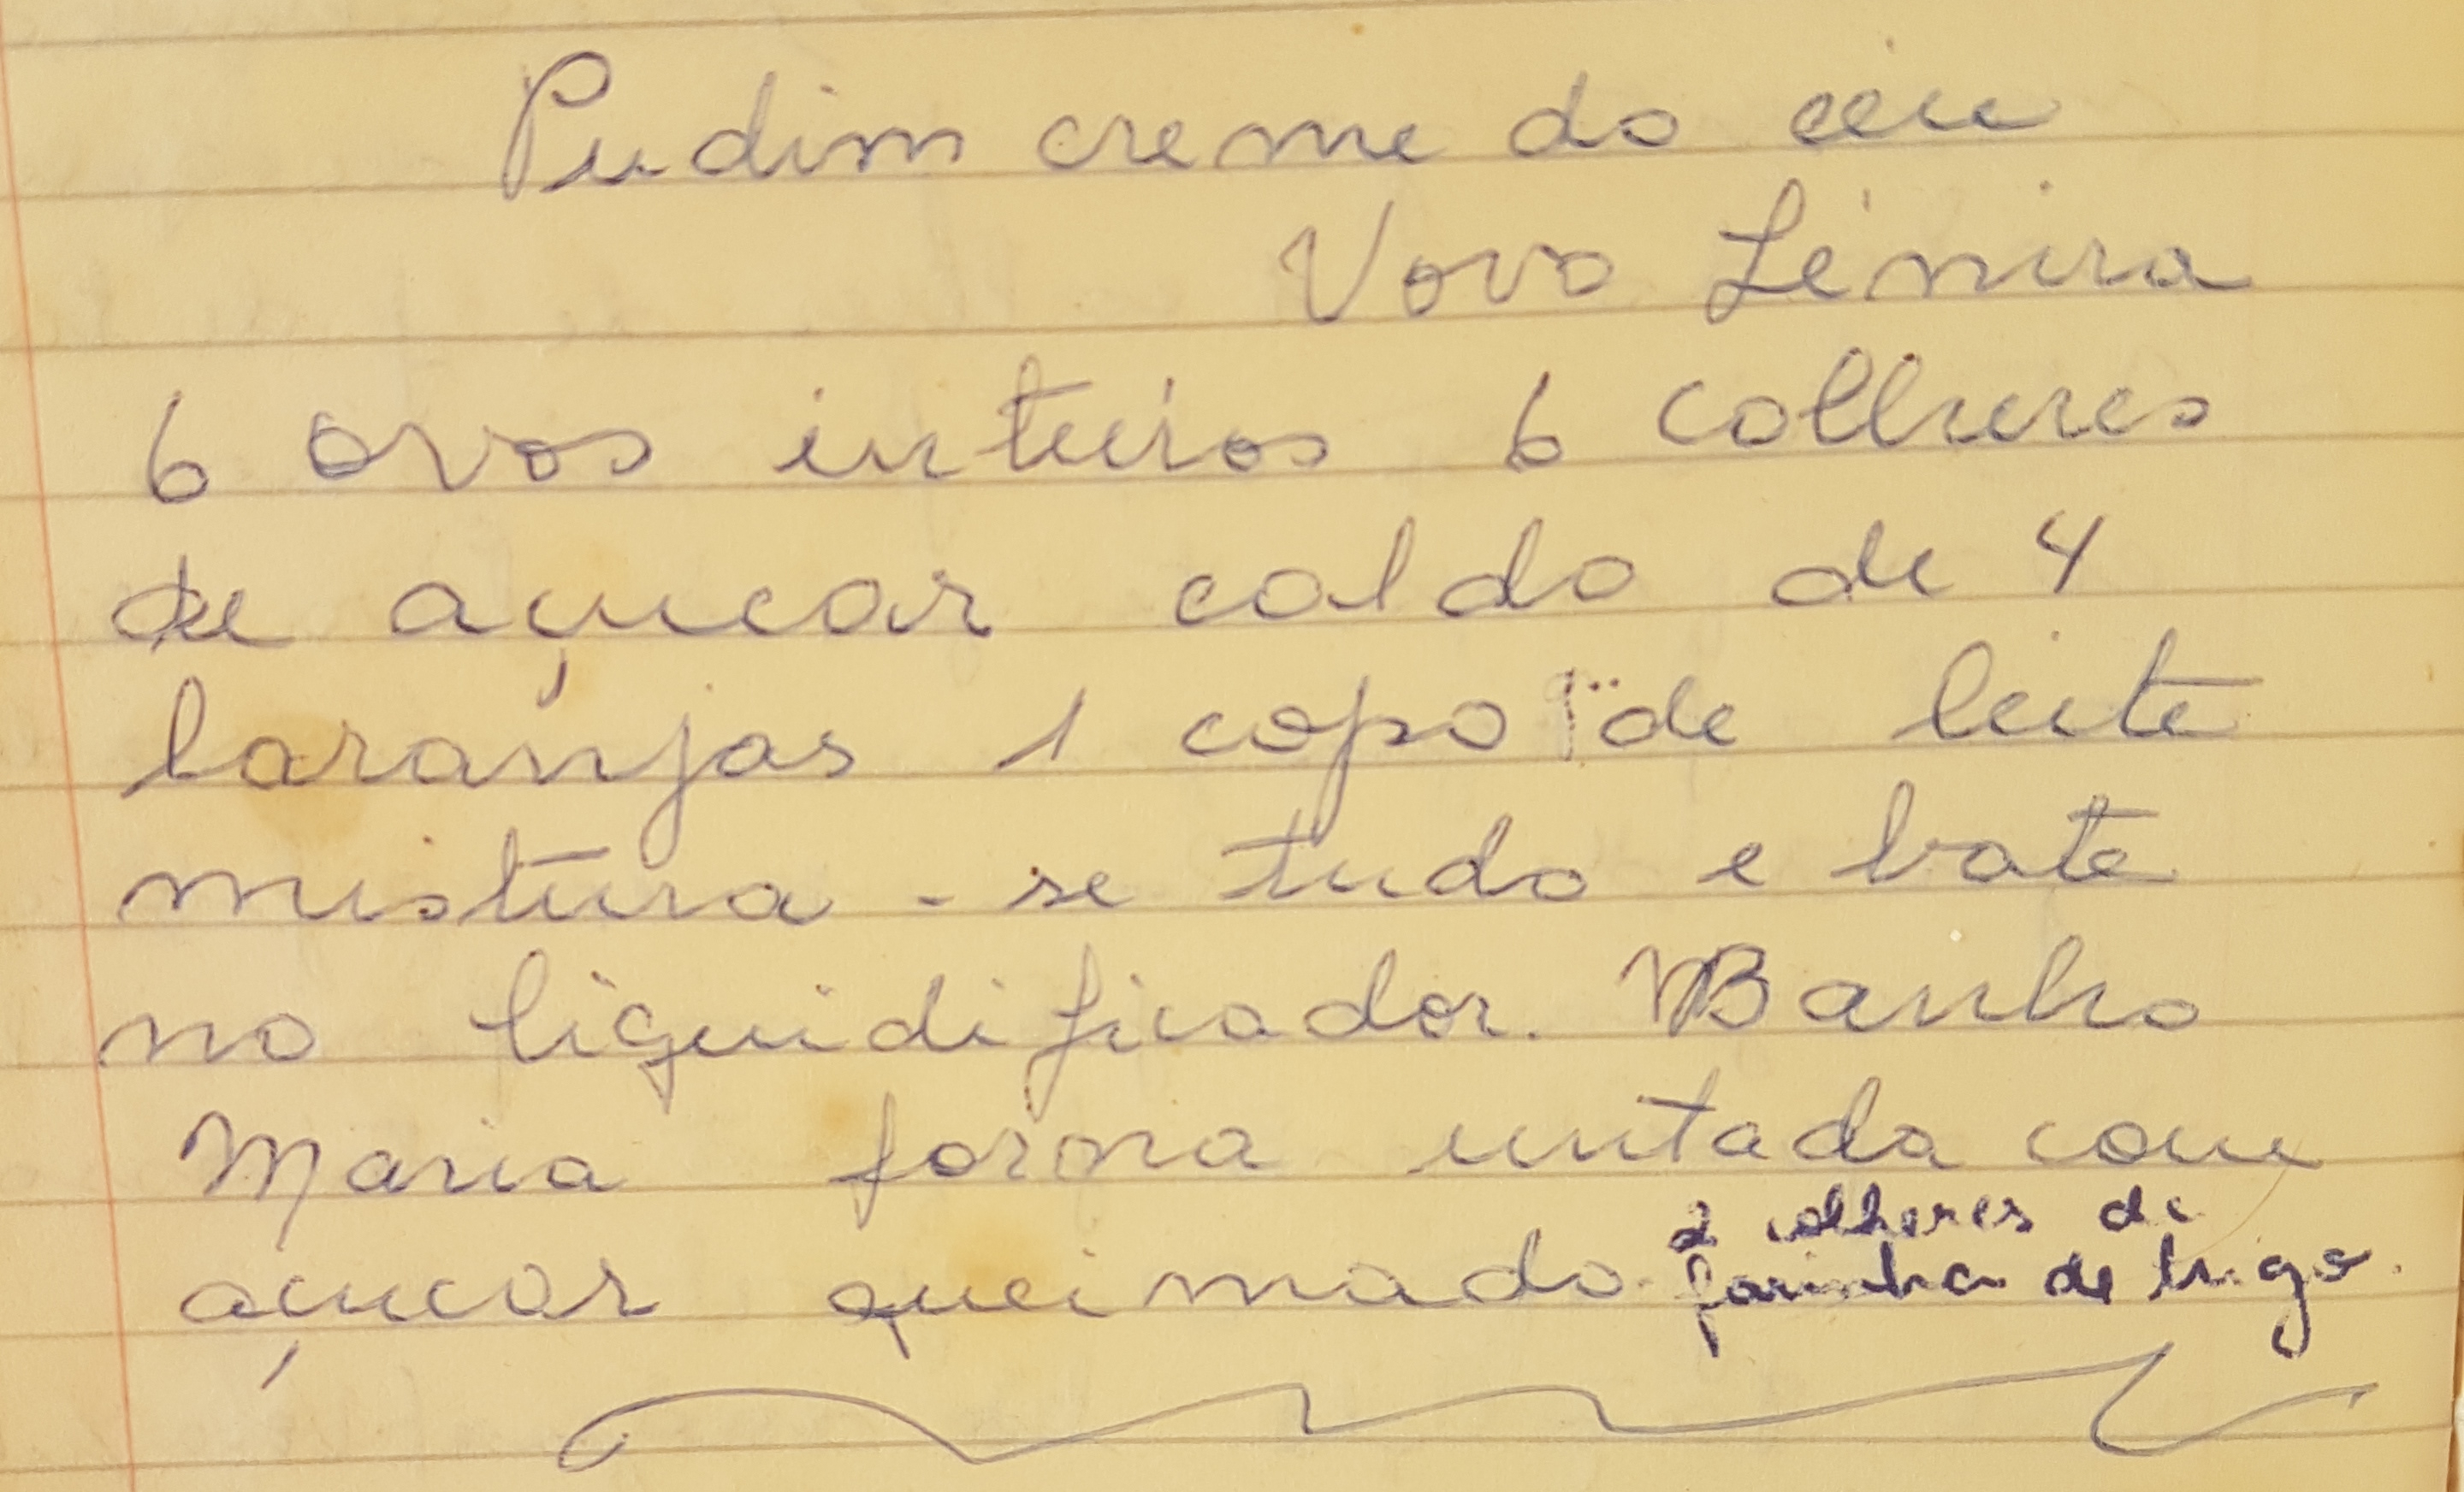 Pudim creme do céu
Vovo Lénira
6 ovos inteiros 6 colheres
de açucar caldo de 4
laranjas 1 copo de leite
mistura-se tudo e bate
no liquidificador. Banho
Maria forma untada com
açucar queimado. 2 colheres de
farinha de trigo.